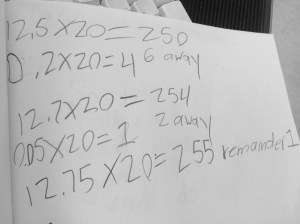 12.5X20=250
0.2X20=4 6 away
12.7X20=254
2 away
0.05X20=1
12.75X20=255 remainder 1